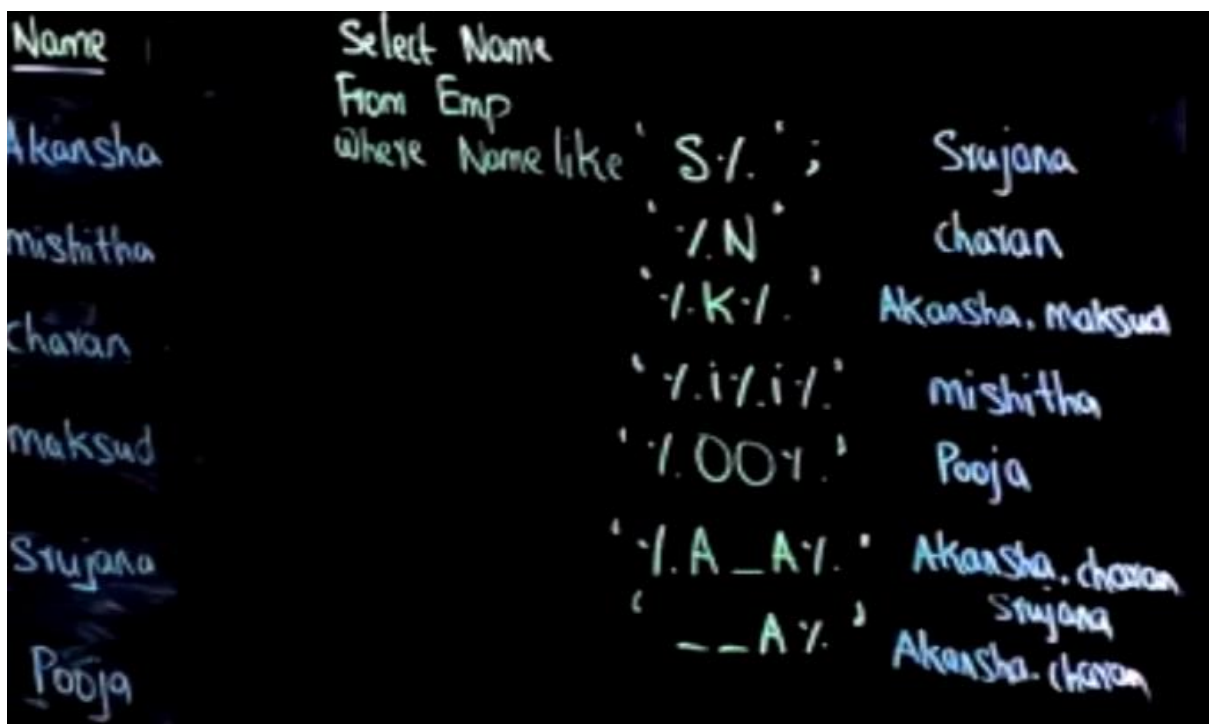 Name
Akansha
mishitha
charan
maksud
Srujana
Pooja
Select Name
From Emp
where Name like 'S%' ; Srujana
'%N' charan
'%K%' Akansha, maksud
'%i%i%' mishitha
'%OO%' Pooja
'%A_A%' Akansha, charan
Srujana
'__A%' Akansha, charan